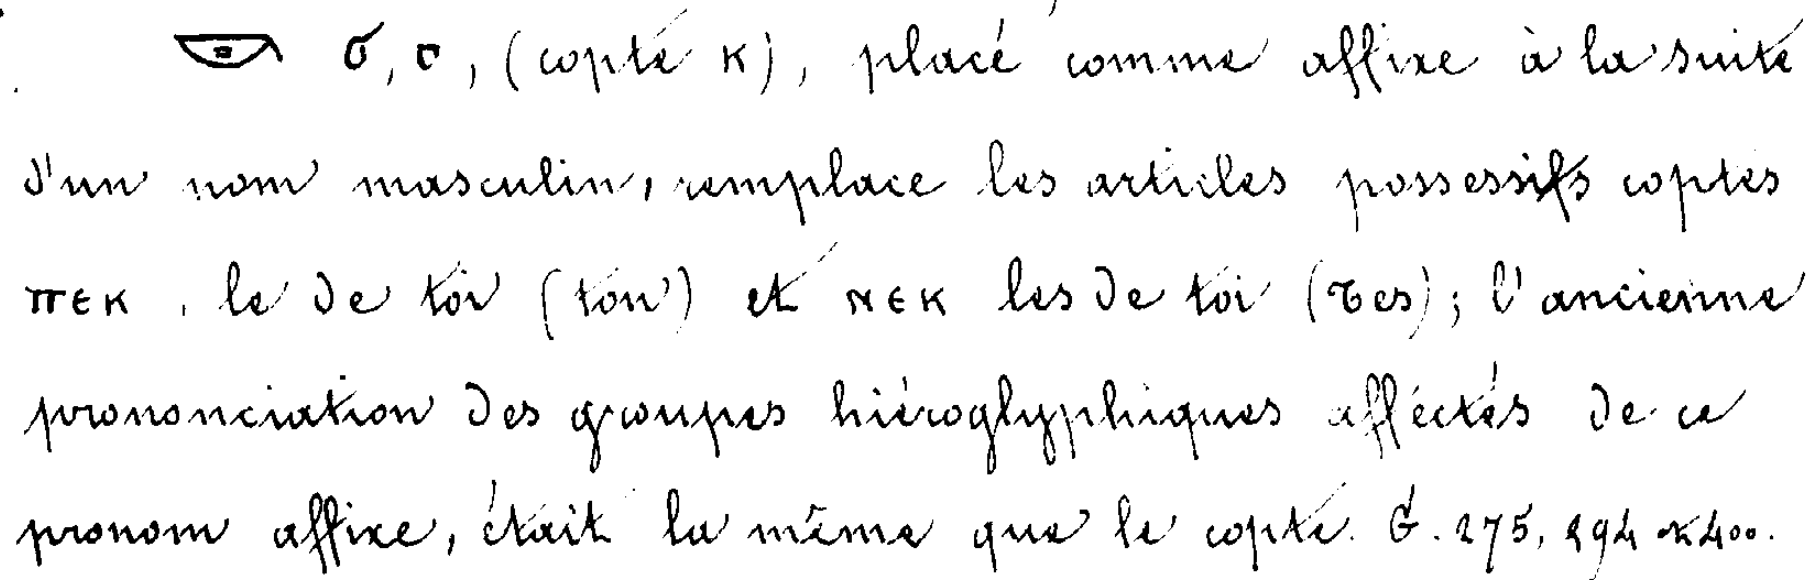 𓎡 σ, σ, (copte ⲕ), placé comme affixe à la suite
d'un nom masculin, remplace les articles possessifs coptes
ⲡⲉⲕ, le de toi (ton) et ⲛⲉⲕ les de toi (tes); l'ancienne
prononciation des groupes hiéroglyphiques affectés de ce
pronom affixe, était la même que le copte. G. 275, 294 et 400.